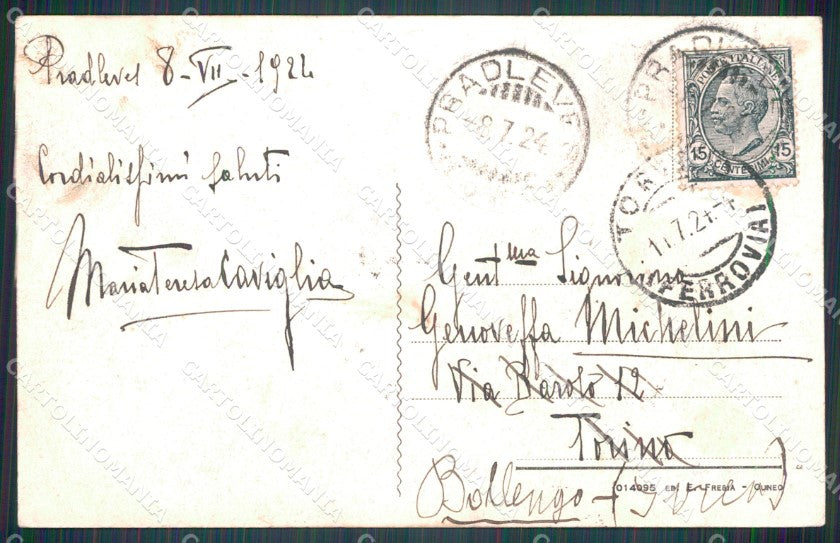 Pradleves 8-VII-1924
Cordialissimi saluti
Maria Teresa Caviglia
PRADLEVES
8.7.24
PRADLEVES
POSTE ITALIANE
15 CENTESIMI 15
TORINO
11.7.24
FERROVIA
Gent.ma Signorina
Genoveffa Michelini
Via Barolo 12
Torino
Bollengo - (Ivrea)
014095 ED. E. FREBIA - CUNEO
CARTOLINOMANIA